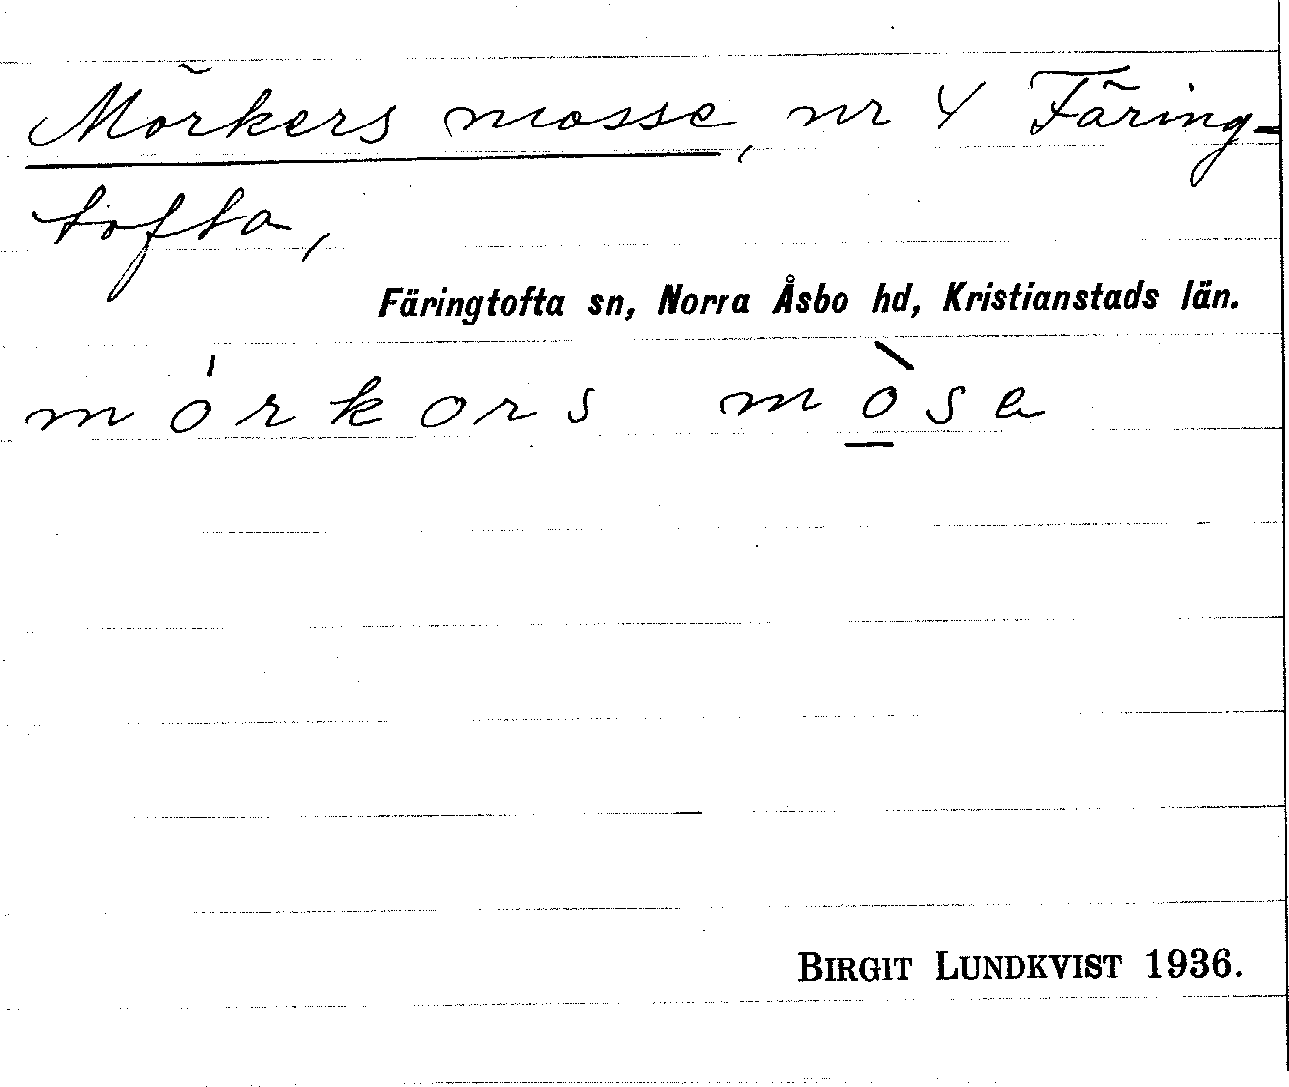 Mörkers mosse, nr 4 Färing-
tofta,
Färingtofta sn, Norra Åsbo hd, Kristianstads län.
mórkors mòse
BIRGIT LUNDKVIST 1936.